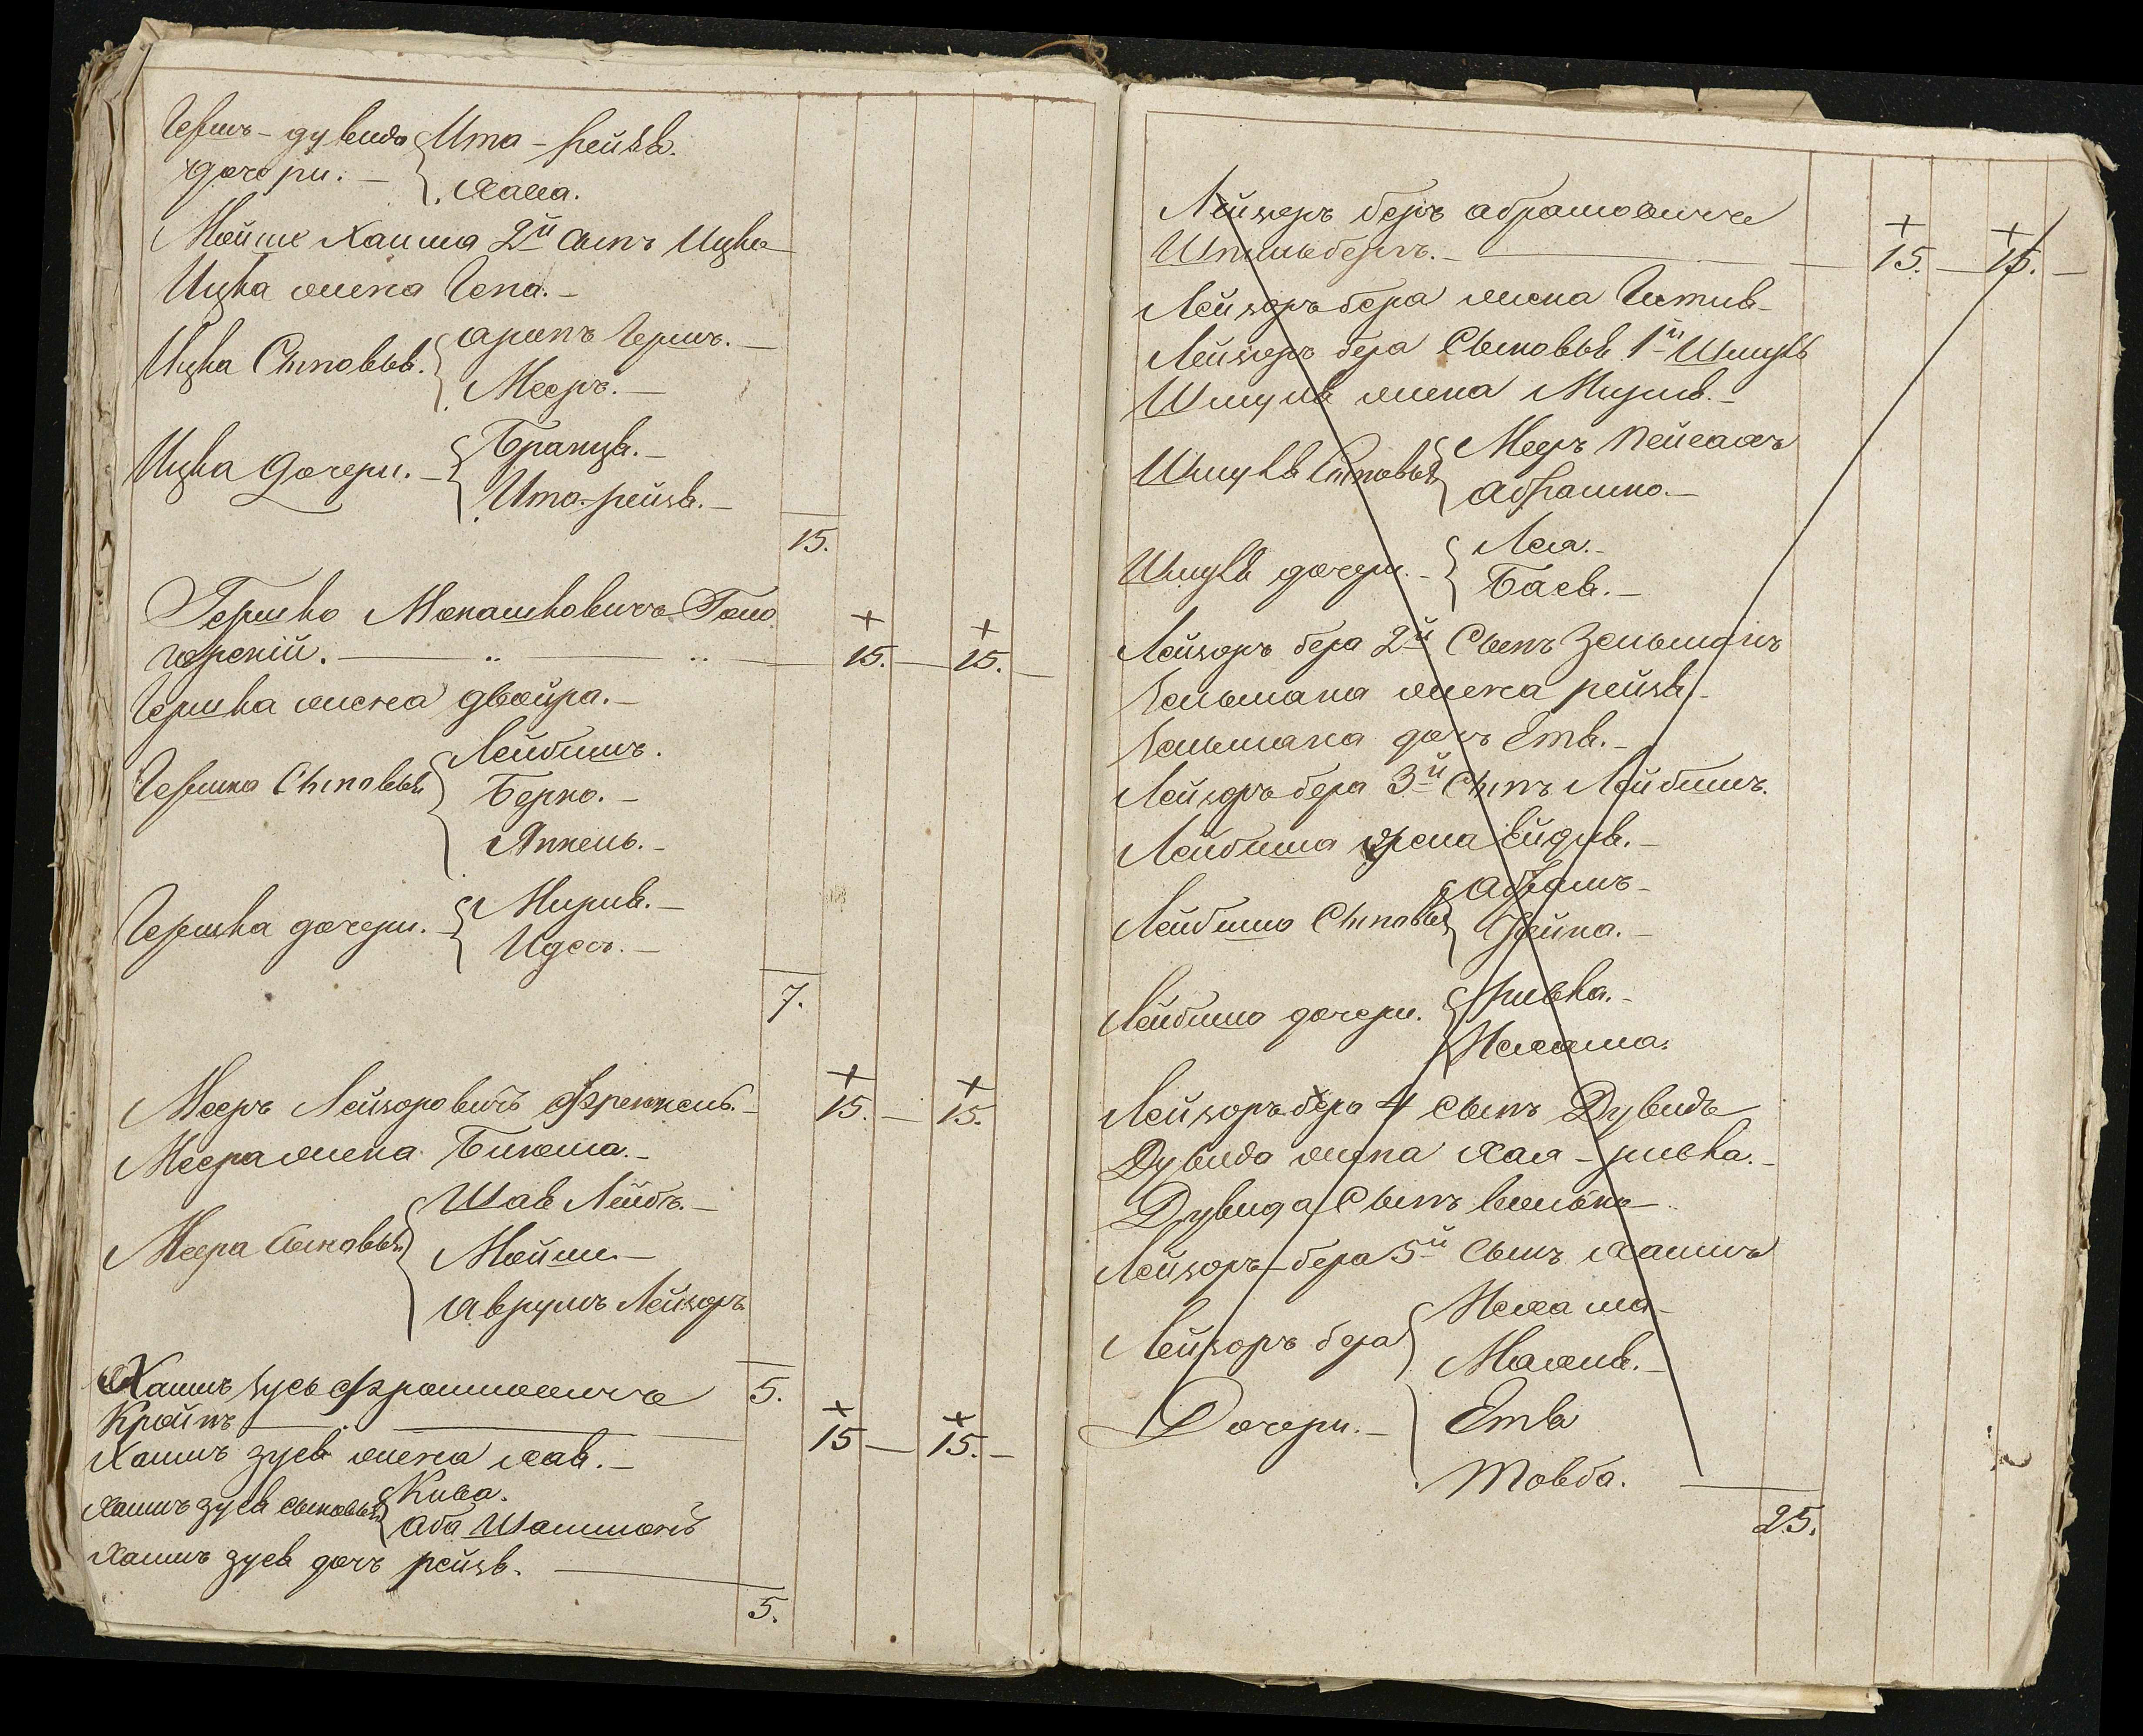 Гершъ-дувида { Ита-рейзѣ.
дочери. — { Хана.
Мойше Хаима 2й сынъ Ицко
Ицка жена Гена. —
Ицка Сыновья. { аронъ Гершъ. —
Мееръ. —
Ицка дочери. — { Бранцѣ. —
Ита-рейзѣ. —
15.
Гершко Монашковичъ Гоно
Герскій. — 15. — 15. —
Гершка жена двойра. —
Гершка Сыновья { Лейбишъ.
Берко. —
Янкель. —
Гершка дочери. — { Мирив. —
Идесъ. —
7.
Мееръ Лейзоровичъ Френкель. — 15. — 15.
Меера жена Бинома. —
Меера сыновья { Шаѣ Лейбъ. —
Мойше —
Аврумъ Лейзоръ
5.
Хаимъ зусь Фроимовичъ
Кройнъ — 15 — 15. —
Хаимъ зусѣ жена хаѣ. —
Хаимъ зусѣ сыновья { Кива.
Аба Шлиомонъ
Хаимъ зусѣ дочъ рейзѣ.
5.
Лейзоръ беръ абрамовичъ
Штильберъ. — 15. — 15. —
Лейзоръ бера жена Гитлѣ —
Лейзоръ бера Сыновья 1й Шмуль
Шмулѣ жена Мирлѣ. —
Шмулѣ Сыновья { Мееръ Пейсахъ
Абрамко. —
Шмулѣ дочери. — { Лея. —
Басѣ. —
Лейзоръ бера 2й Сынъ Зельманъ
Зельмана жена рейзѣ —
Зельмана дочъ Етѣ. —
Лейзоръ бера 3й Сынъ Лейбишъ.
Лейбиша жена Ейдлѣ. —
Лейбиша Сыновья { Абрамъ —
Крейна. —
Лейбиша дочери. { ривка. —
Нехама.
Лейзоръ бера 4 сынъ Дувидъ
Дувида жена хая-ривка. —
Дувида Сынъ Велько —
Лейзоръ-бера 5й Сынъ Хаимъ
Лейзоръ бера { Нехама —
Малкѣ. —
Дочери. — { Етѣ
Товба.
25.